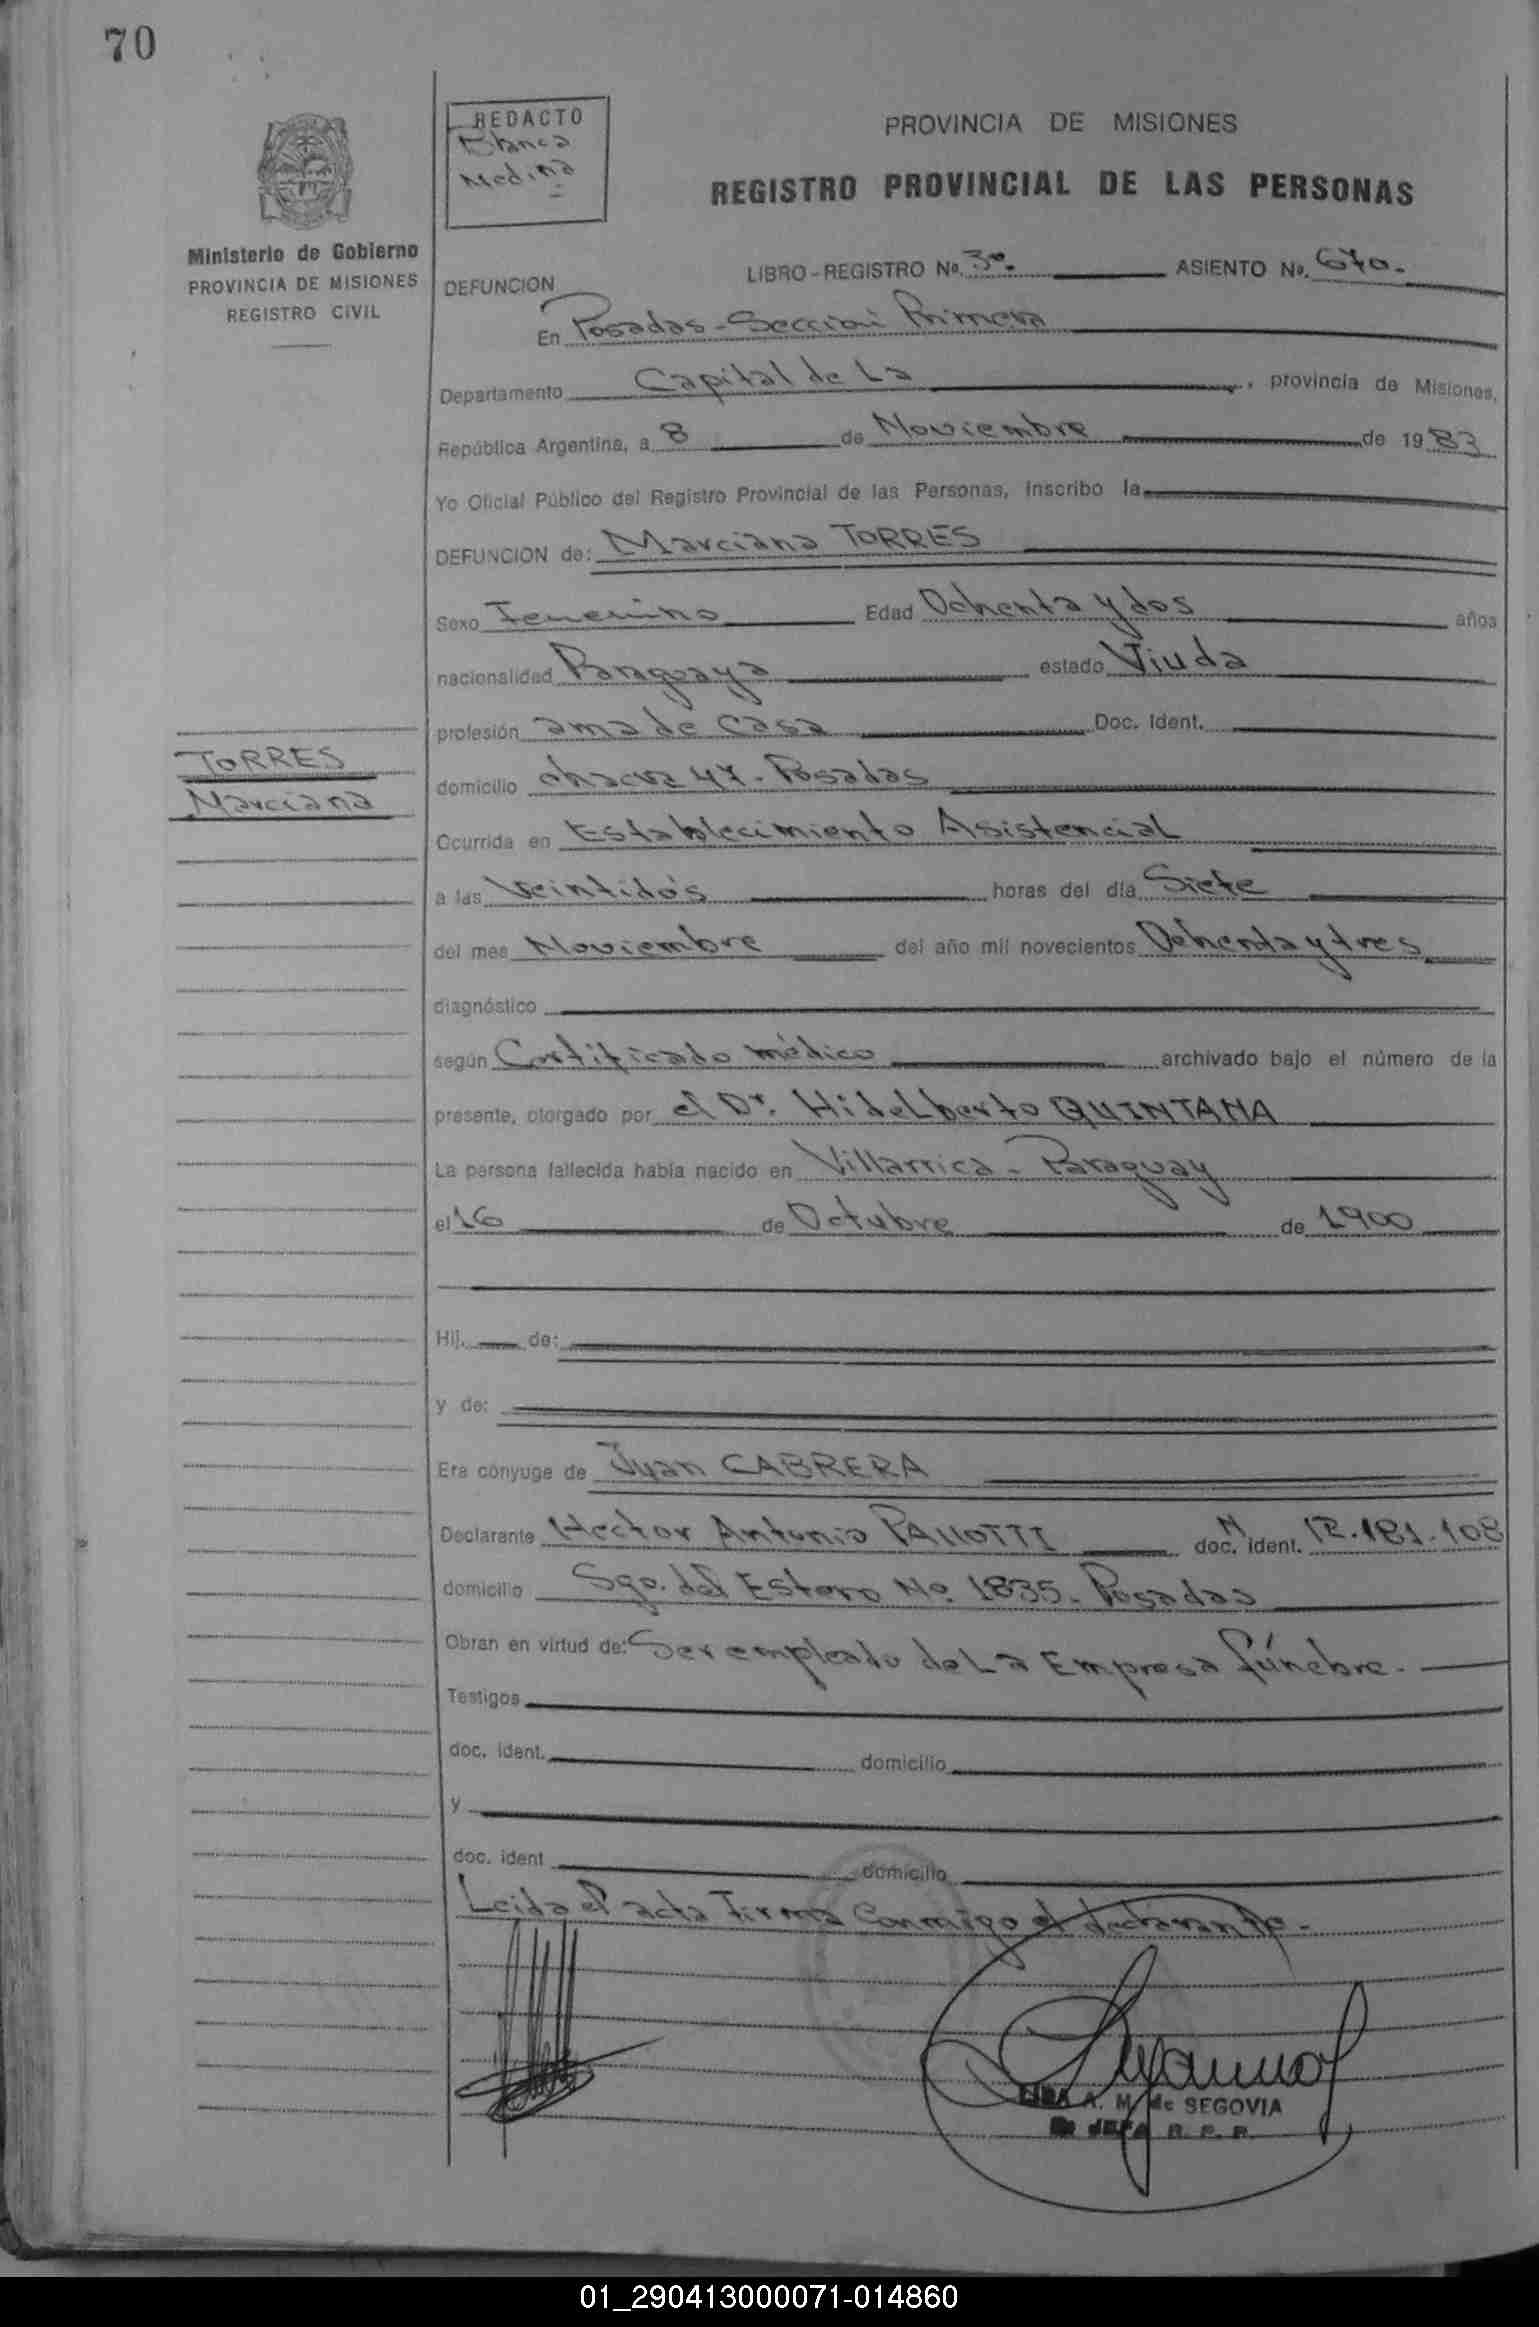 70
REDACTO
Blanca
Medina
PROVINCIA DE MISIONES
REGISTRO PROVINCIAL DE LAS PERSONAS
Ministerio de Gobierno
PROVINCIA DE MISIONES
REGISTRO CIVIL
LIBRO-REGISTRO No. 3º. ASIENTO No. 670.
DEFUNCION
En Posadas - Sección Primera
Departamento Capital de La, provincia de Misiones,
República Argentina, a 8 de Noviembre de 1983
Yo Oficial Público del Registro Provincial de las Personas, inscribo la
DEFUNCION de: Marciana TORRES
Sexo Femenino Edad Ochenta y dos años
nacionalidad Paraguaya estado Viuda
profesión ama de casa Doc. Ident.
TORRES
Marciana
domicilio chacra 47. Posadas
Ocurrida en Establecimiento Asistencial
a las Veintidós horas del día Siete
del mes Noviembre del año mil novecientos Ochenta y tres
diagnóstico
según Certificado médico archivado bajo el número de la
presente, otorgado por el Dr. Hidelberto QUINTANA
La persona fallecida había nacido en Villarrica - Paraguay
el 16 de Octubre de 1900
Hij. de:
y de:
Era cónyuge de Juan CABRERA
Declarante Hector Antonio doc. ident. 12.181.108
domicilio Sgo. del Estero No. 1835. Posadas
Obran en virtud de: Ser empleado de La Empresa fúnebre.
Testigos
doc. ident. domicilio
y
doc. ident domicilio
Leida el acta Firma Conmigo el declarante.
A. M. de SEGOVIA
JEFA R. P. P.
01_290413000071-014860